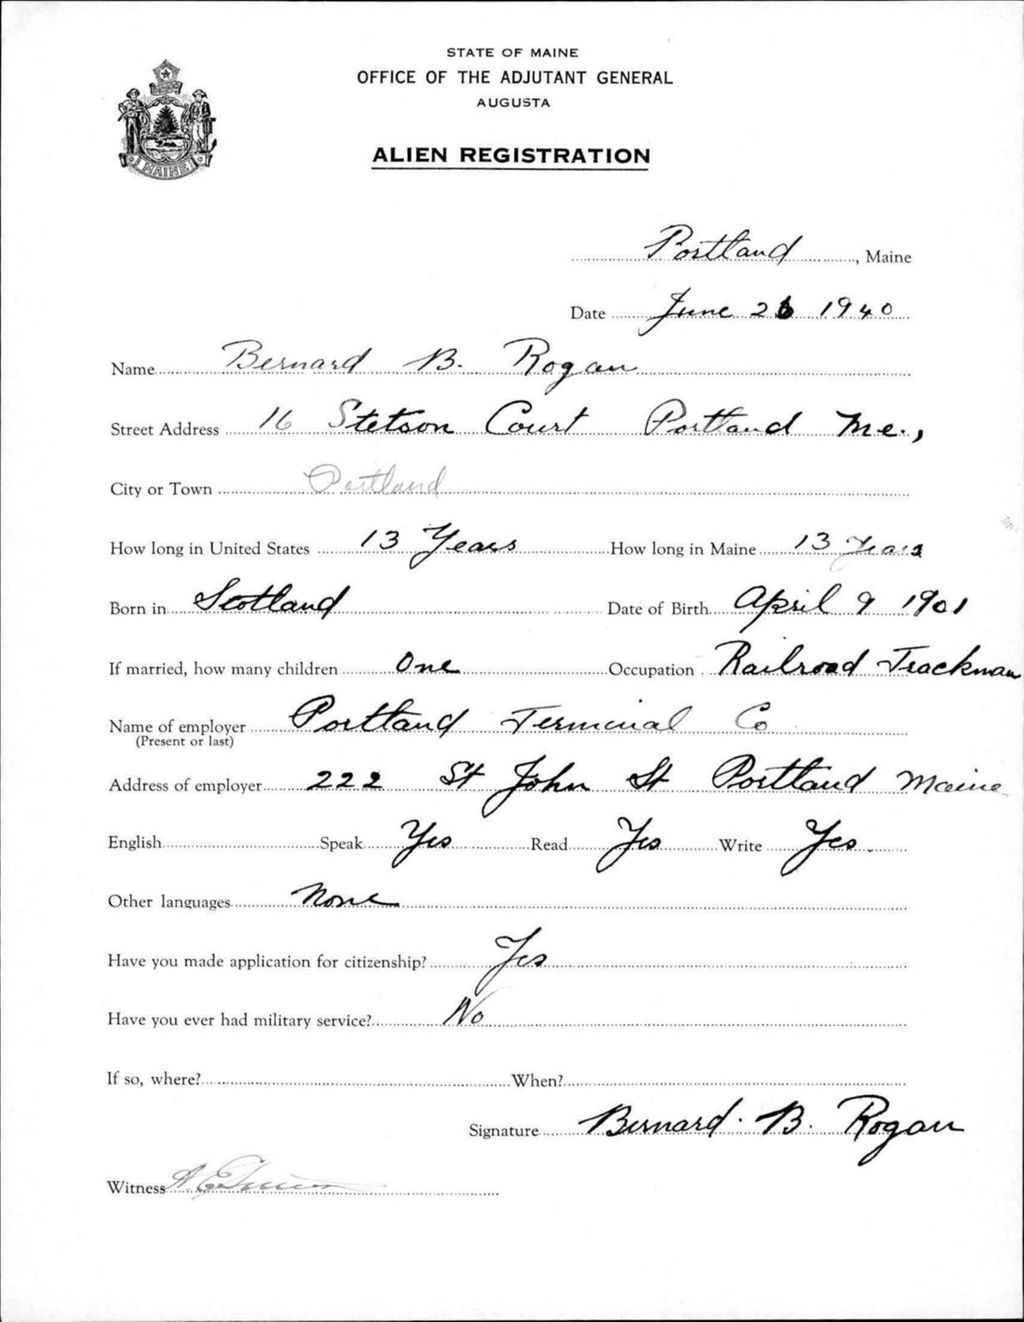 STATE OF MAINE
OFFICE OF THE ADJUTANT GENERAL
AUGUSTA
ALIEN REGISTRATION
MAINE
Portland, Maine
Date June 26 1940
Name Bernard B. Rogan
Street Address 16 Stetson Court Portland Me.,
City or Town Portland
How long in United States 13 Years How long in Maine 13 Years
Born in Scotland Date of Birth April 9 1901
If married, how many children One Occupation Railroad Trackman
Name of employer Portland Terminal Co
(Present or last)
Address of employer 222 St John St Portland Maine
English Speak Yes Read Yes Write Yes.
Other languages None
Have you made application for citizenship? Yes
Have you ever had military service? No
If so, where? When?
Signature Bernard. B. Rogan
Witness